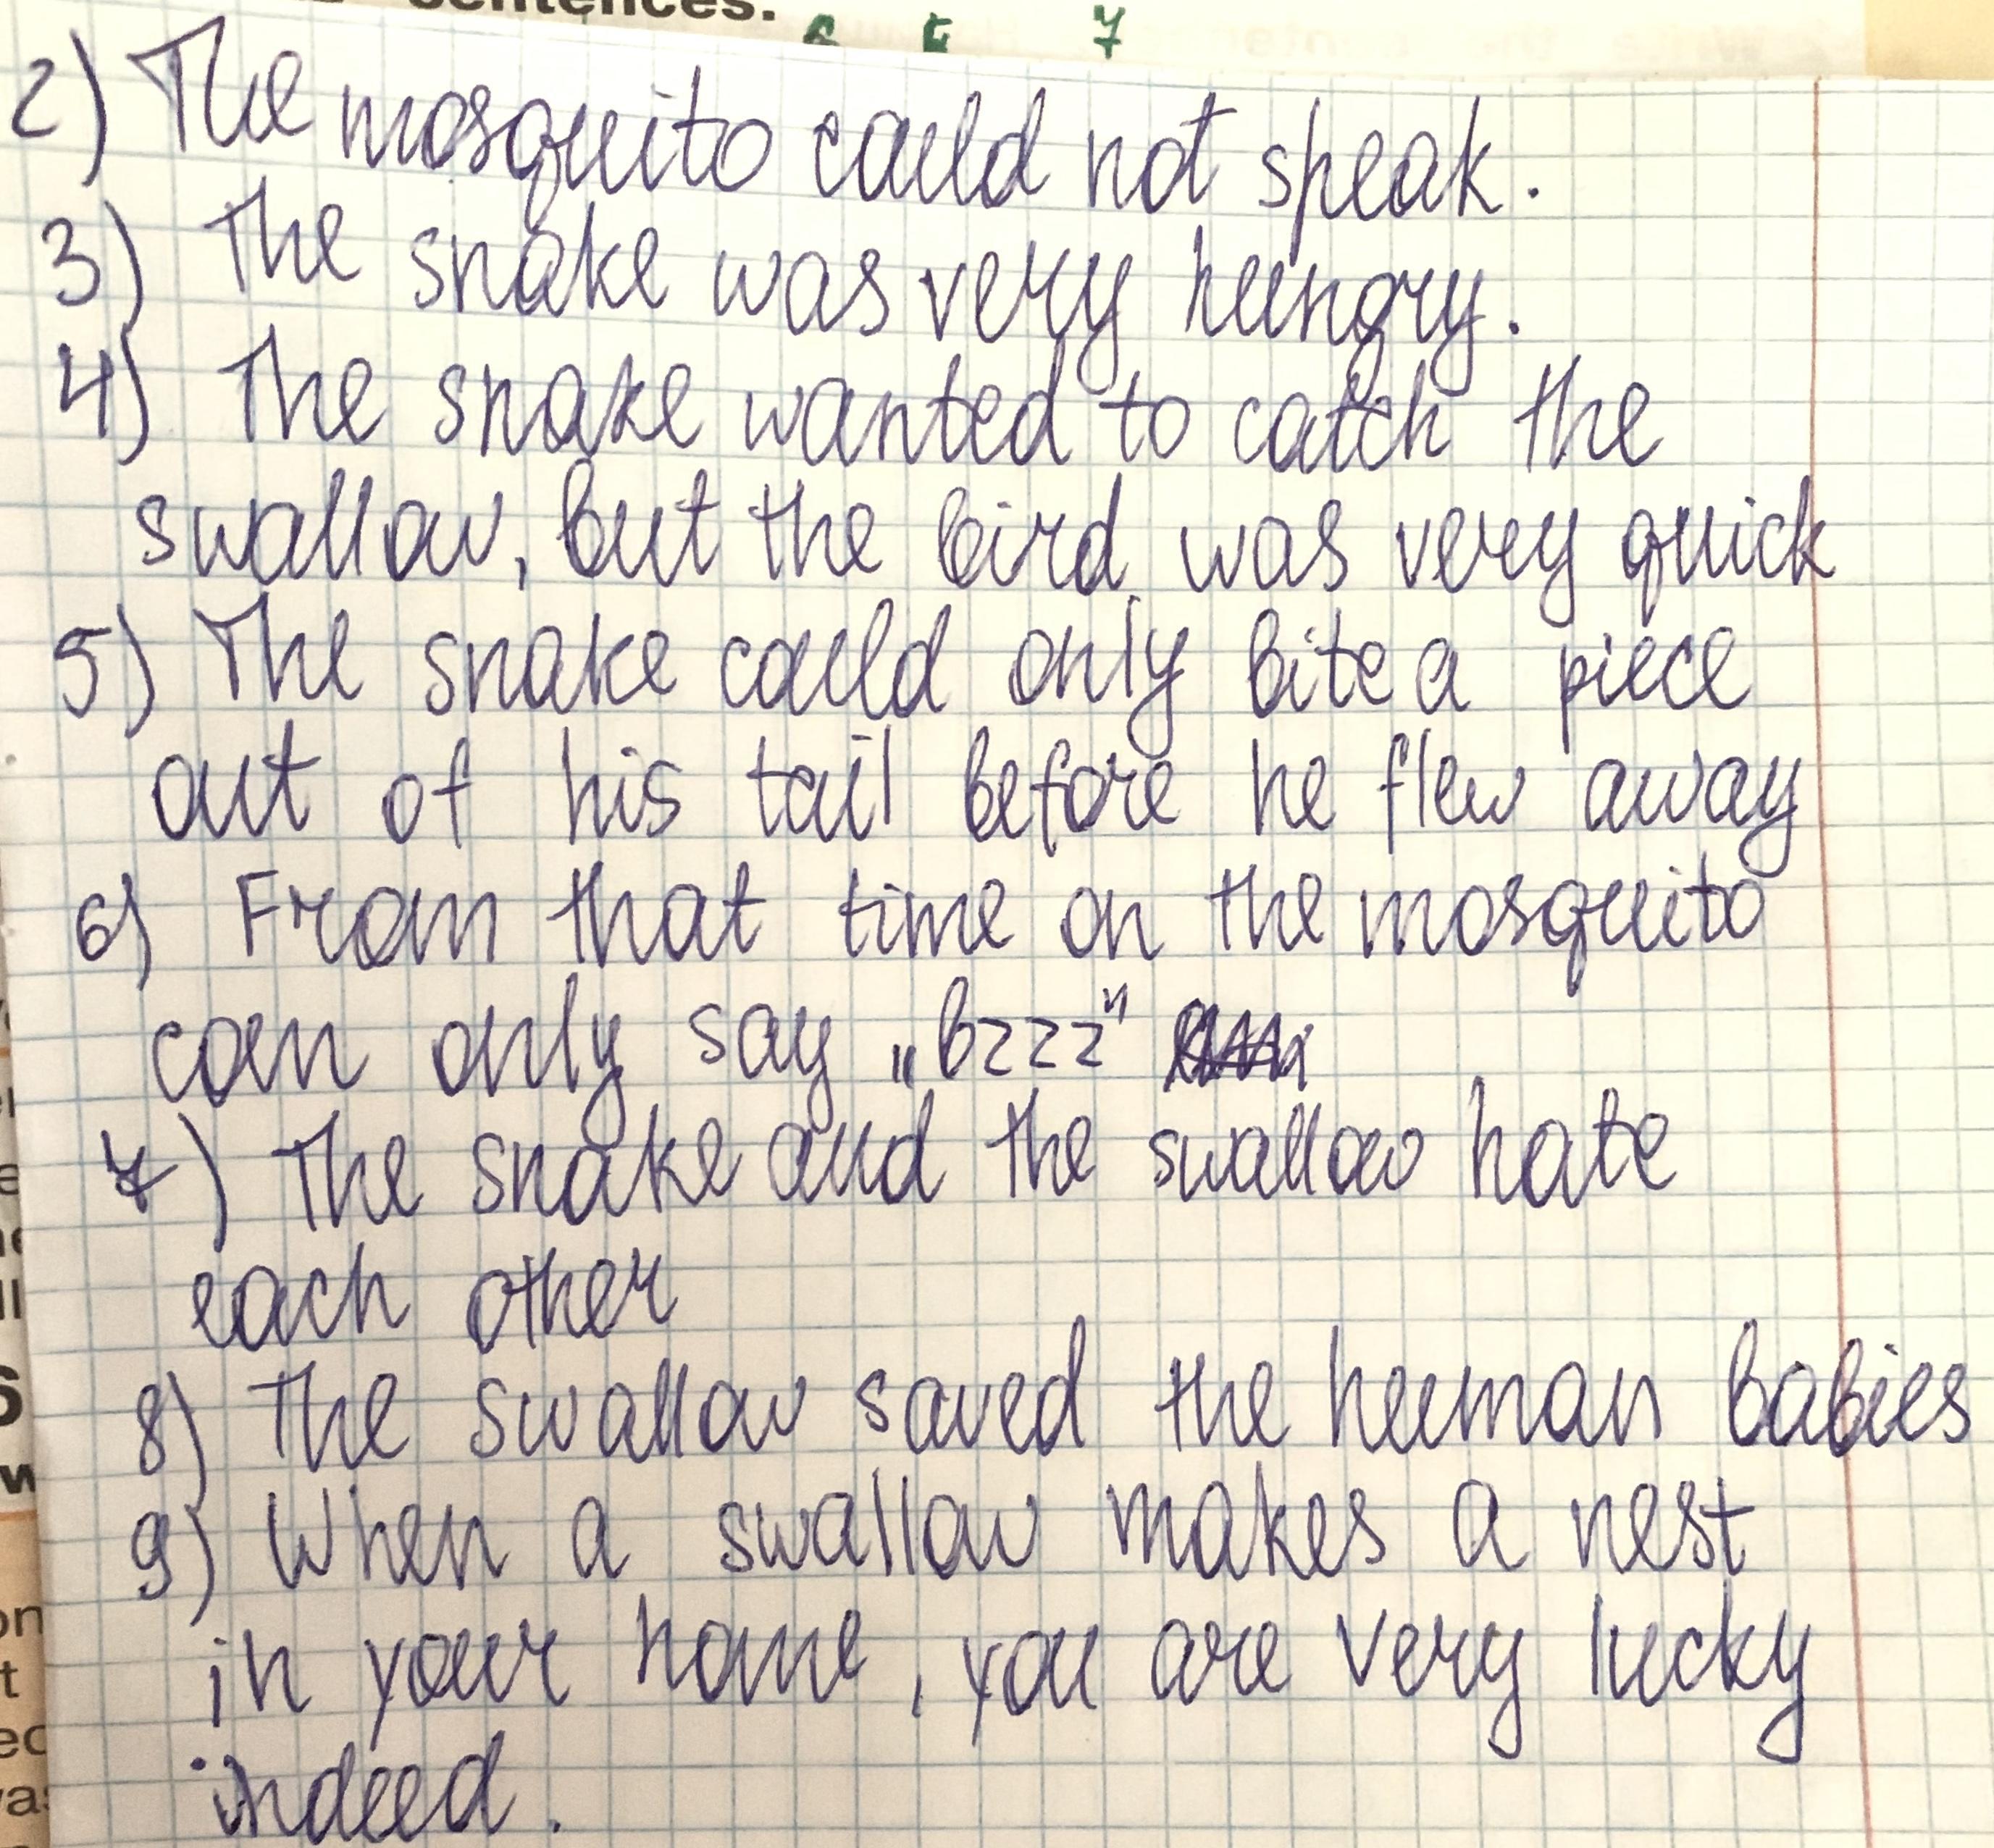 sentences.
7
2) The mosquito could not speak.
3) The snake was very hungry.
4) The snake wanted to catch the
swallow, but the bird was very quick
5) The snake could only bite a piece
out of his tail before he flew away
6) From that time on the mosquito
can only say „bzzz"
7) The snake and the swallow hate
each other
8) The swallow saved the human babies
9) When a swallow makes a nest
in your home, you are very lucky
indeed.